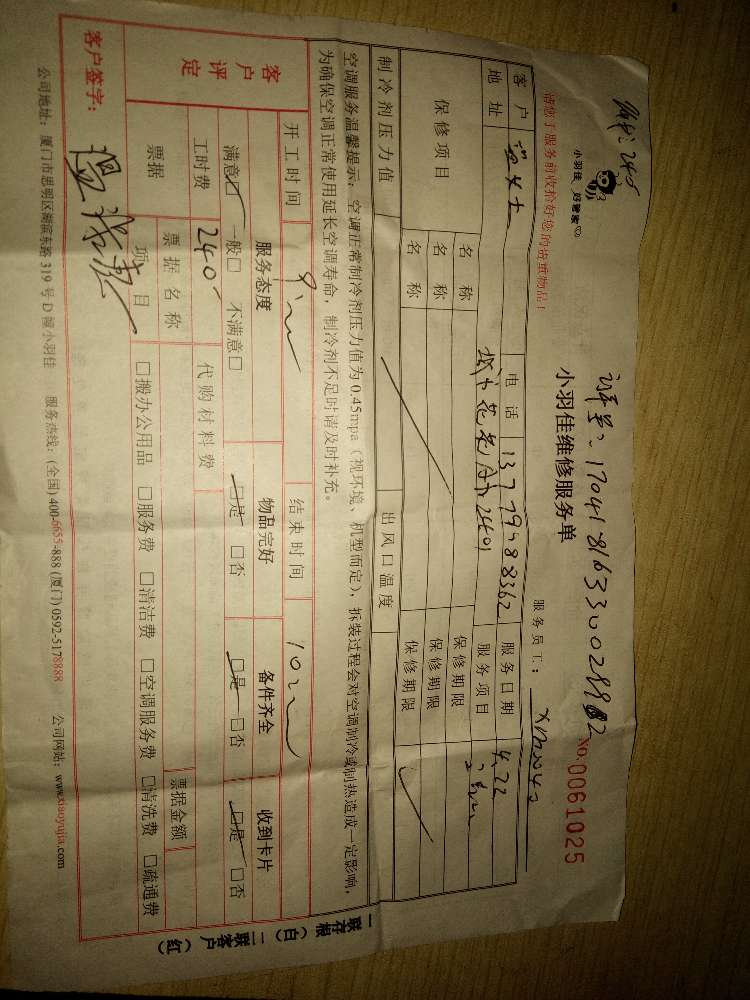 240
小羽佳 好管家
请您于服务前收拾好您的贵重物品!
订单号: 1704181633302
小羽佳维修服务单
No. 0061025
服务员工:
客户 温女士 电话 服务日期 4.22
地址 2401 服务项目
保修项目 名称 保修期限
名称 保修期限
名称 保修期限
制冷剂压力值 出风口温度
空调服务温馨提示: 空调正常制冷剂压力值为0.45mpa(视环境、机型而定), 拆装过程会对空调制冷或制热造成一定影响,
为确保空调正常使用延长空调寿命, 制冷剂不足时请及时补充。
开工时间 结束时间
客户评定 服务态度 物品完好 备件齐全 收到卡片
满意☑ 一般□ 不满意□ ☑是 □否 ☑是 □否 ☑是 □否
工时费 240 代购材料费
票据 票据名称 票据金额
项目 □搬办公用品 □服务费 □清洁费 □空调服务费 □清洗费 □疏通费
客户签字:
公司地址: 厦门市思明区湖滨东路319号D幢小羽佳 服务热线: (全国) 400-6655-888 (厦门) 0592-5178888 公司网站: www.xiaoyujia.com
一联存根(白) 二联客户(红)